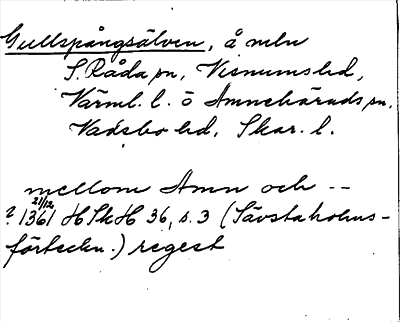 Gullspångsälven, å mln
S. Råda sn, Visnums hd,
Värml. l. o Amnehärads sn,
Vadsbo hd, Skar. l.
mellom Amn och --
? 1361 21/12 HSkH 36, s. 3 (Sävstaholms-
förteckn.) regest